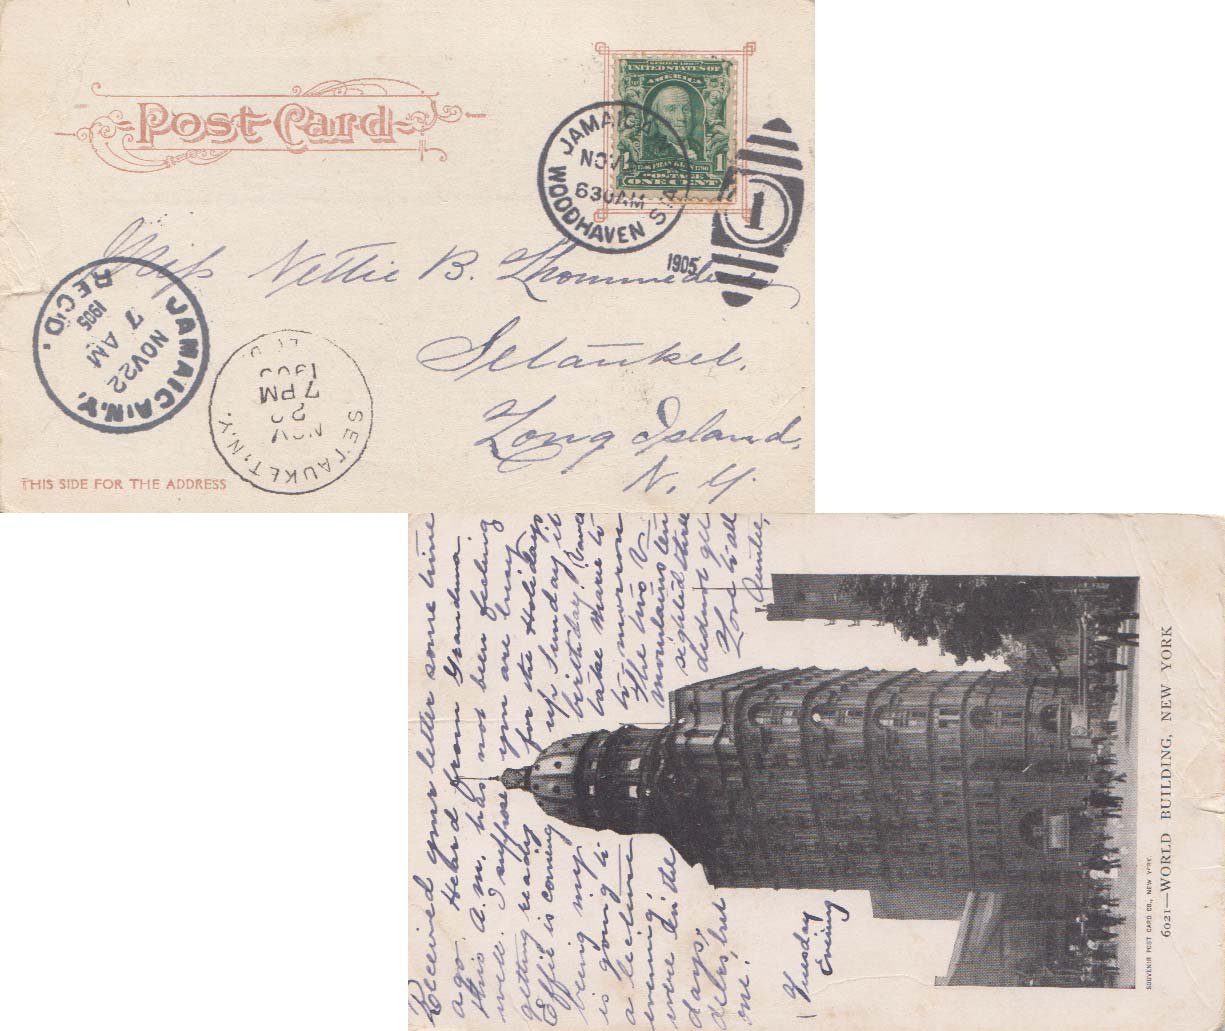 Post Card
SERIES 1902
UNITED STATES OF
AMERICA
FRANKLIN
POSTAGE
1
ONE CENT
JAMAICA
NOV
630AM
WOODHAVEN STA
1905
1
Miss Nettie B. Lhommedieu
Setauket,
Long Island,
N. Y.
JAMAICA, N.Y.
NOV 22
7 AM
1905
REC'D.
SETAUKET, N.Y.
NOV
7 PM
THIS SIDE FOR THE ADDRESS
Received your letter some time
ago. Heard from Grandma
this A.M. has not been feeling
well. I suppose you are busy
getting ready for the Holidays.
Effie is coming up Sunday it
being my birthday.
is going to take Marie to
a lecture to-morrow
evening. The two
were in the mountains ten
days, sighted three
deers, but didnut get
one. Love to all
Auntie,
Tuesday
Evening
SOUVENIR POST CARD CO., NEW YORK
6021—WORLD BUILDING, NEW YORK